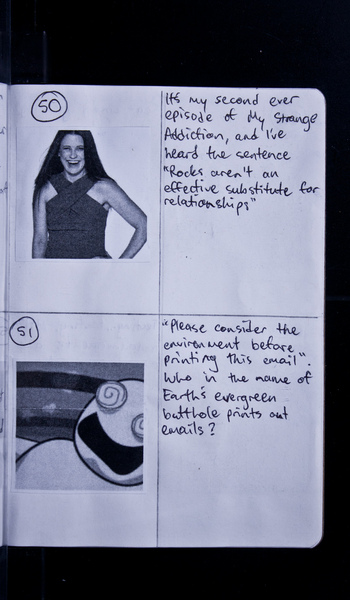 50
Its my second ever
episode of My Strange
Addiction, and I've
heard the sentence
"Rocks aren't an
effective substitute for
relationships"
51
"Please consider the
environment before
printing this email".
Who in the name of
Earth's evergreen
butthole prints out
emails?